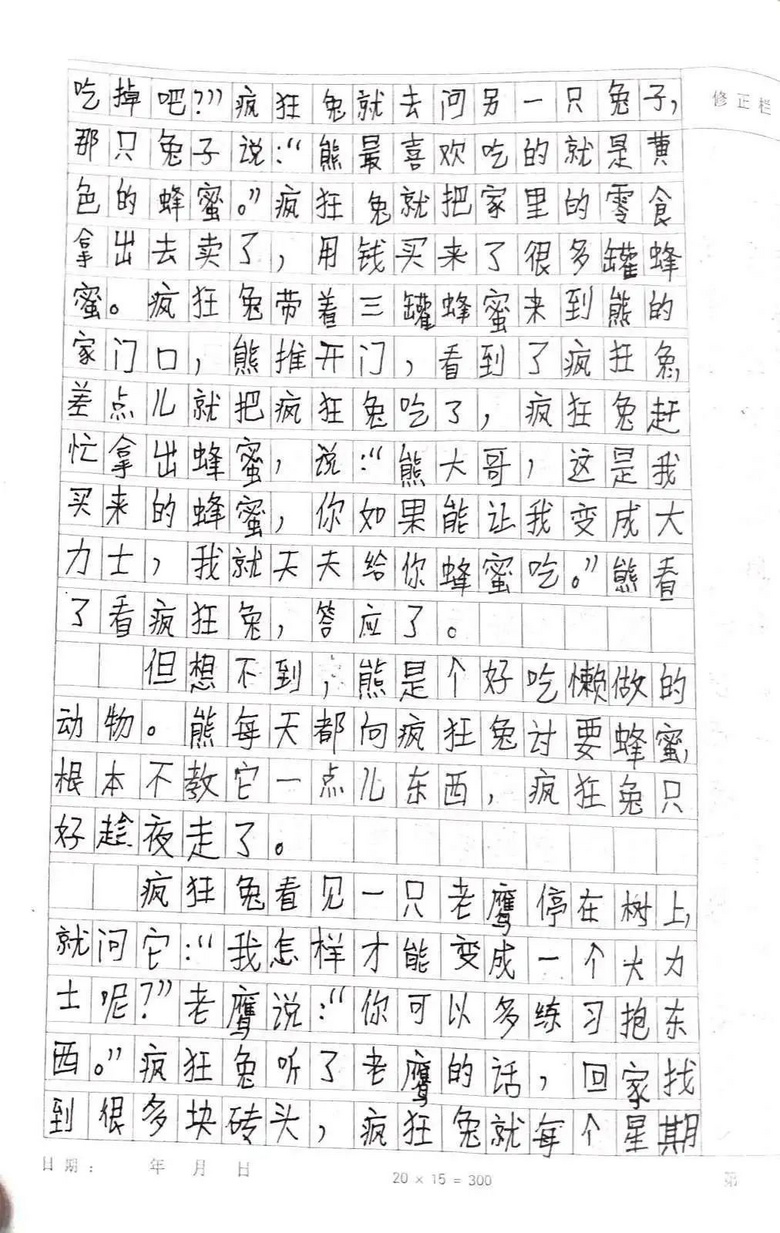 修正栏
吃掉吧?”疯狂兔就去问另一只兔子,
那只兔子说:“熊最喜欢吃的就是黄
色的蜂蜜。”疯狂兔就把家里的零食
拿出去卖了,用钱买来了很多罐蜂
蜜。疯狂兔带着三罐蜂蜜来到熊的
家门口,熊推开门,看到了疯狂兔,
差点儿就把疯狂兔吃了,疯狂兔赶
忙拿出蜂蜜,说:“熊大哥,这是我
买来的蜂蜜,你如果能让我变成大
力士,我就天天给你蜂蜜吃。”熊看
了看疯狂兔,答应了。
但想不到,熊是个好吃懒做的
动物。熊每天都向疯狂兔讨要蜂蜜,
根本不教它一点儿东西,疯狂兔只
好趁夜走了。
疯狂兔看见一只老鹰停在树上,
就问它:“我怎样才能变成一个大力
士呢?”老鹰说:“你可以多练习抱东
西。”疯狂兔听了老鹰的话,回家找
到很多块砖头,疯狂兔就每个星期
日期: 年 月 日 20×15=300 第